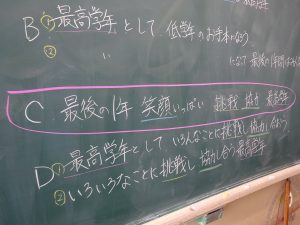 B ① 最高学年として 低学年のお手本になろう
② 〃 になって 最後の1年間
C 最後の1年 笑顔いっぱい 挑戦 協力 最高学年
D ① 最高学年として いろんなことに挑戦し協力し合おう
② いろいろなことに挑戦し 協力し合う最高学年